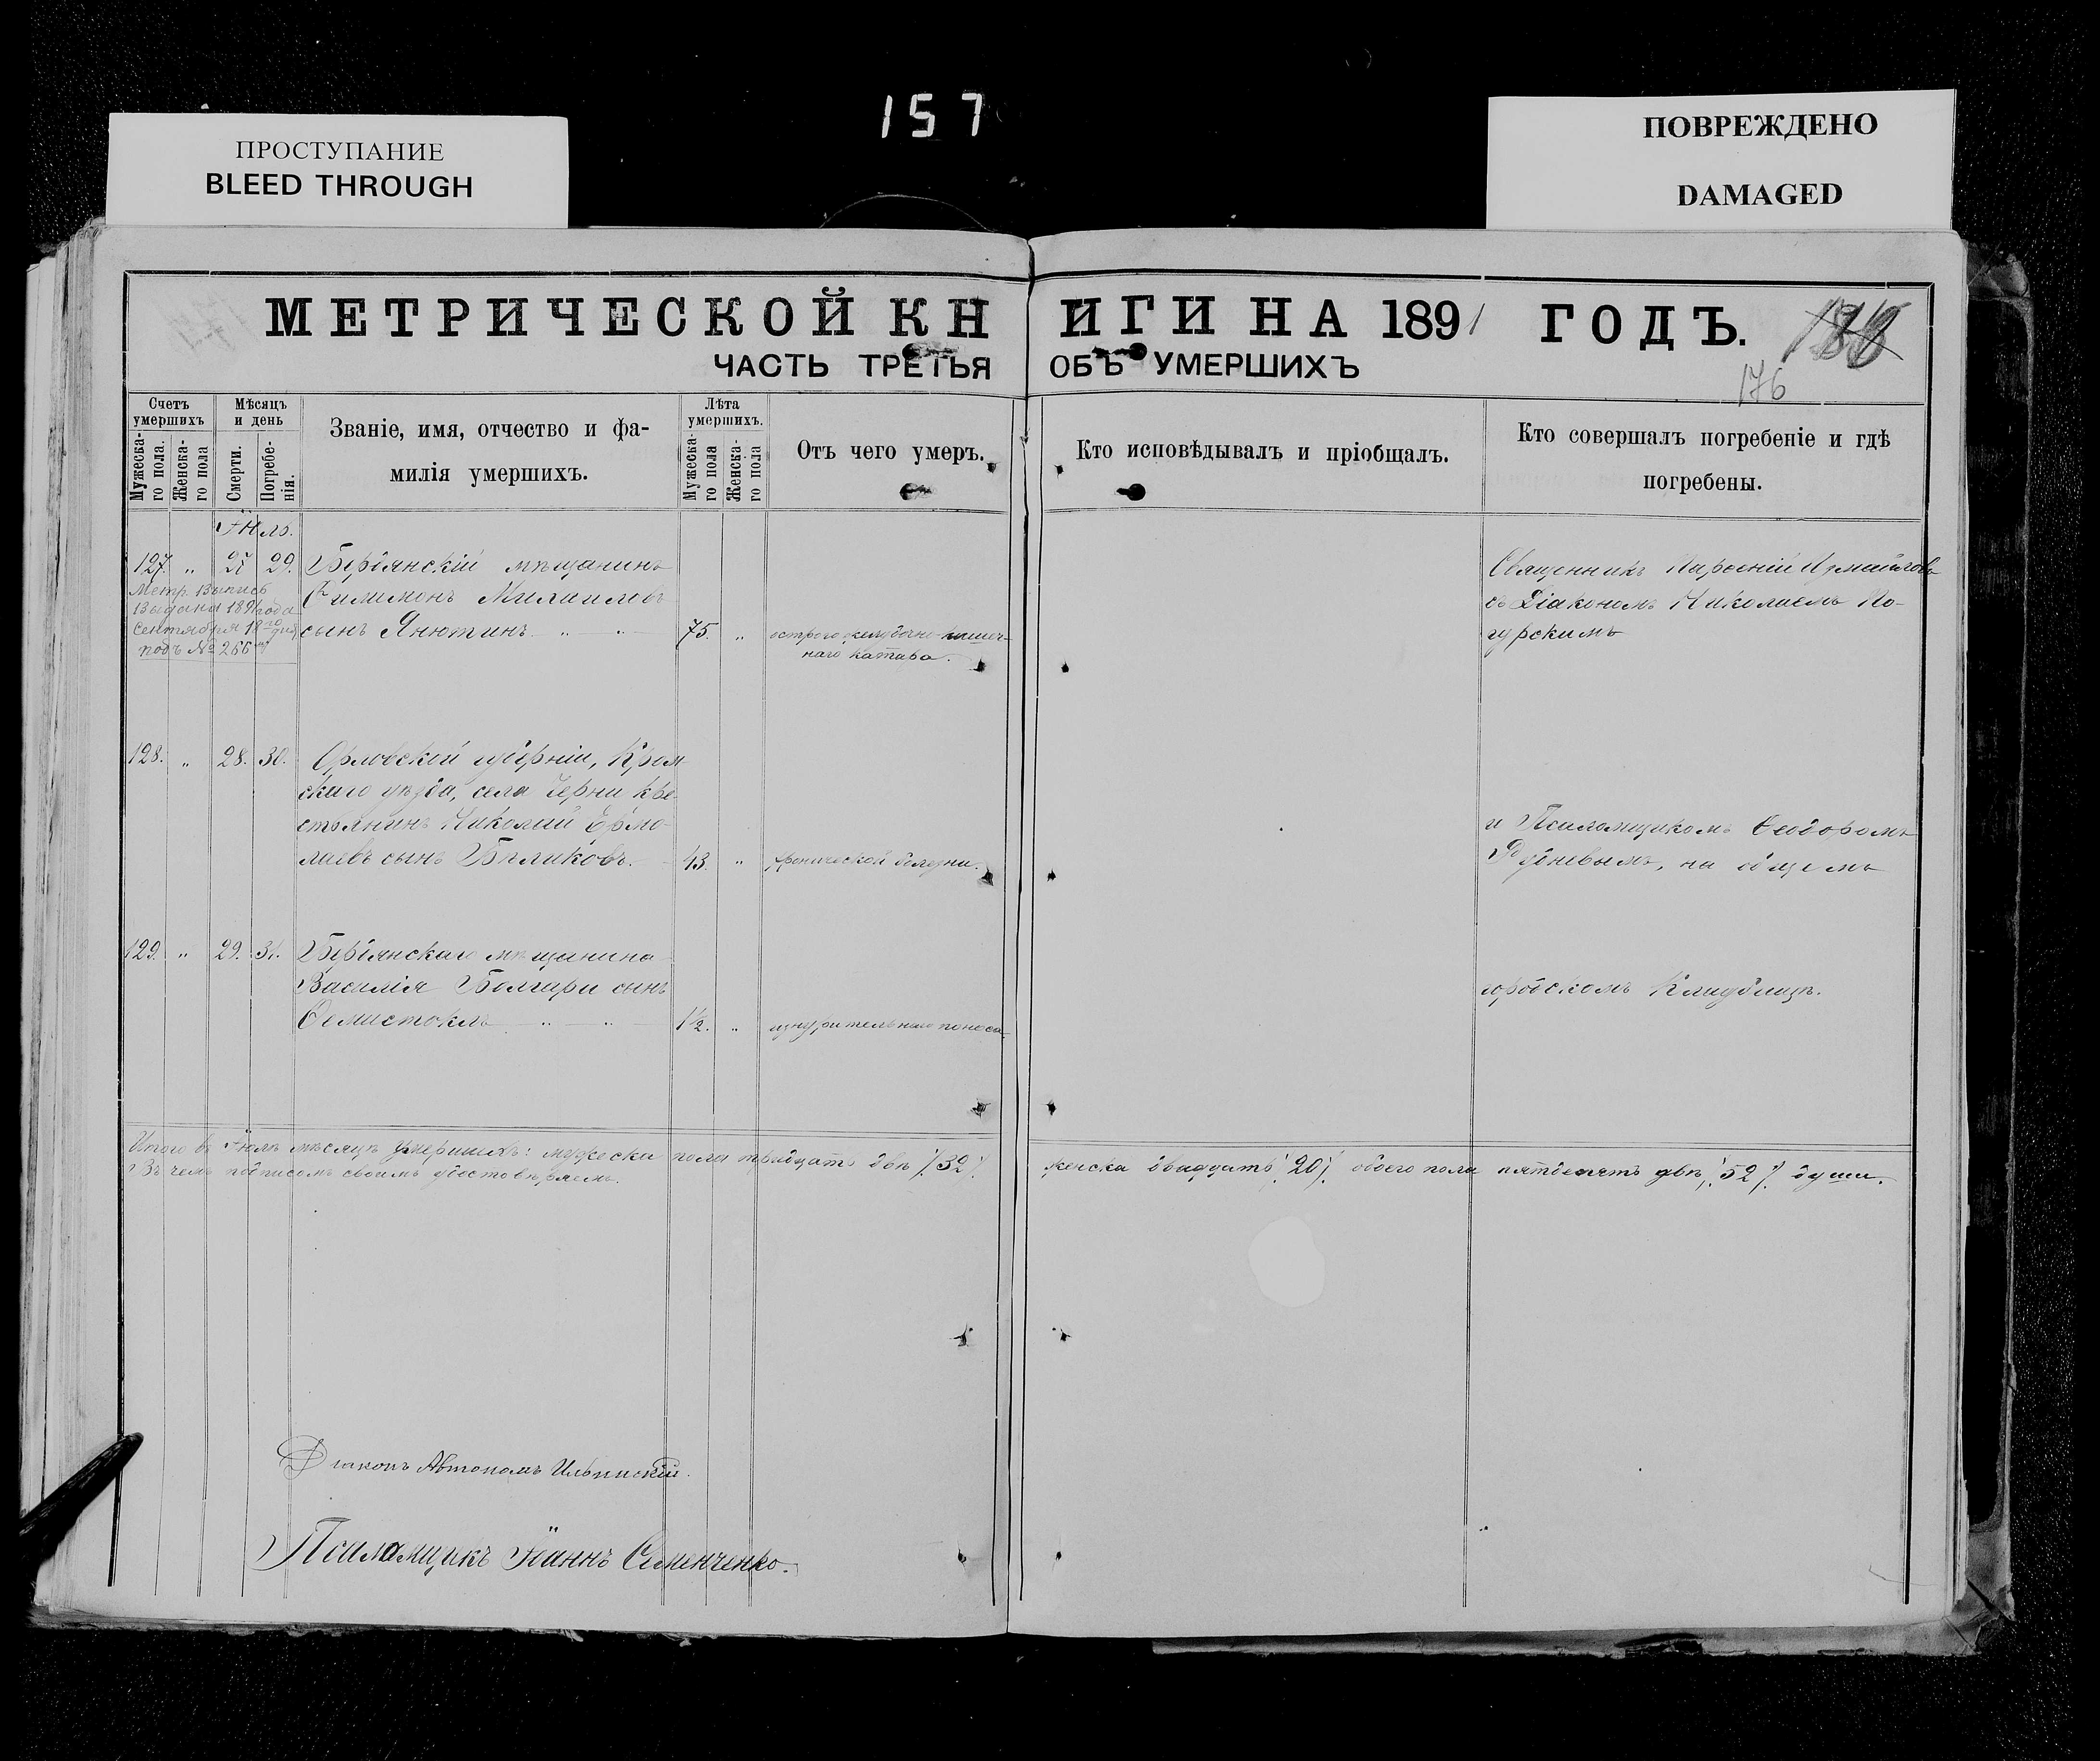 157
ПРОСТУПАНИЕ
BLEED THROUGH
ПОВРЕЖДЕНО
DAMAGED
МЕТРИЧЕСКОЙ КНИГИ НА 1891 ГОДЪ.
176
ЧАСТЬ ТРЕТЬЯ ОБЪ УМЕРШИХЪ
Счетъ умершихъ
Мужеска-го пола.
Женска-го пола
Мѣсяцъ и день
Смерти.
Погребе-нія.
Званіе, имя, отчество и фа-
милія умершихъ.
Лѣта умершихъ.
Мужеска-го пола
Женска-го пола
Отъ чего умеръ.
Кто исповѣдывалъ и пріобщалъ.
Кто совершалъ погребеніе и гдѣ
погребены.
Іюль.
127. " 27 29. Бердянскій мѣщанинъ
Метр. Выпись
Выдана 1891 года
Сентября 18го дня
подъ № 266
Филимонъ Михаиловъ
сынъ Янютинъ " " 75. " остраго желудочно-кишеч-
наго катара.
Священникъ Парѳеній Измаиловъ
съ Діакономъ Николаемъ По-
гурскимъ
128. " 28. 30. Орловской губерніи, Кром-
скаго уѣзда, села Черни кре-
стьянинъ Николай Ермо-
лаевъ сынъ Бѣликовъ. 43. " хронической болезни.
и Псаломщикомъ Ѳеодоромъ
Рудневымъ, на общемъ
129. " 29. 31. Бердянскаго мѣщанина
Василія Болгари сынъ
Ѳемистоклъ " " 1½. " изнурительнаго поноса.
городскомъ Кладбищѣ.
Итого въ Іюлѣ мѣсяцѣ умершихъ: мужеска пола тридцать двѣ /32/. женска двадцать /20/. обоего пола пятдесятъ двѣ, /52/. души.
Въ чемъ подписомъ своимъ удостовѣряемъ.
Діаконъ Автономъ Ильинскій.
Псаломщикъ Іоаннъ Семенченко.